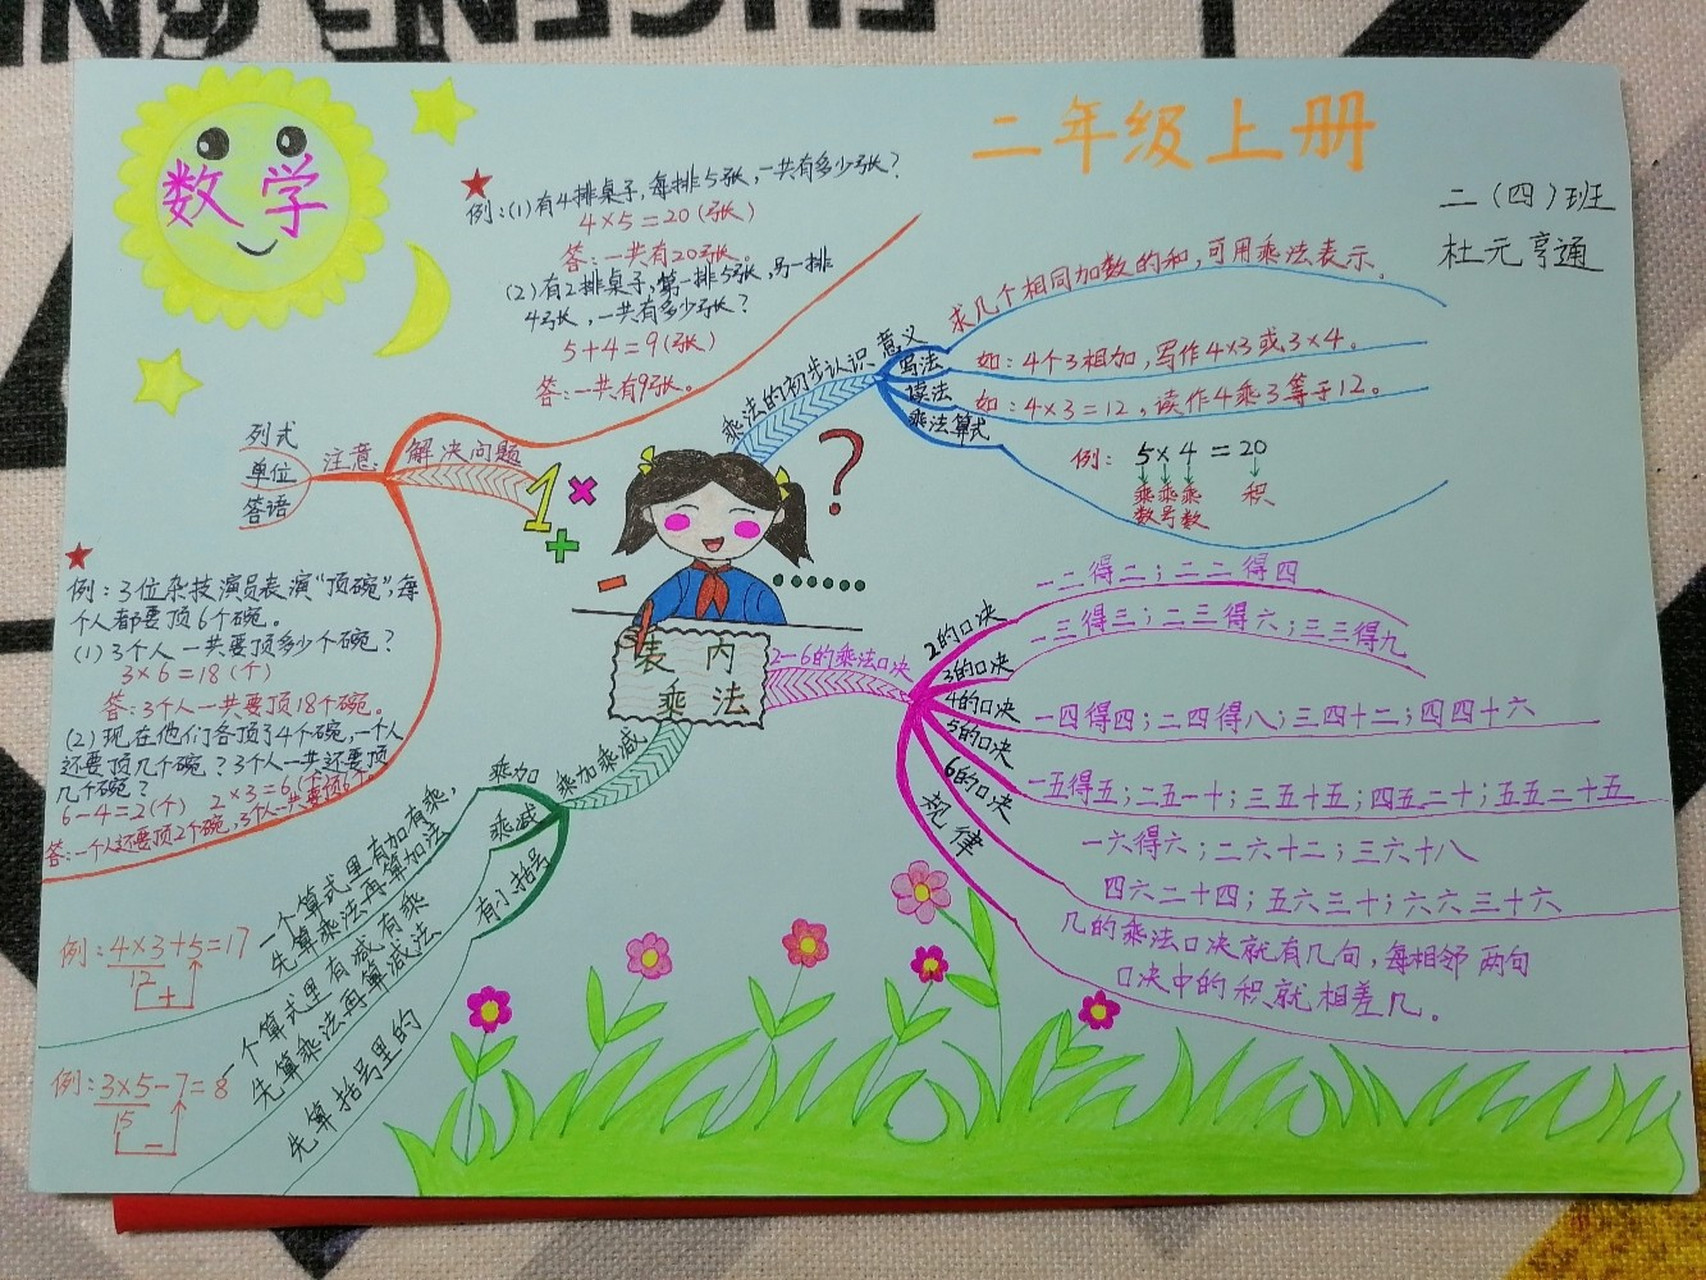 数学
二年级上册
二(四)班
杜元亨通
例:(1)有4排桌子,每排5张,一共有多少张?
4×5=20(张)
答:一共有20张。
(2)有2排桌子,第一排5张,另一排
4张,一共有多少张?
5+4=9(张)
答:一共有9张。
解决问题
注意:
列式
单位
答语
例:3位杂技演员表演“顶碗”,每
个人都要顶6个碗。
(1)3个人一共要顶多少个碗?
3×6=18(个)
答:3个人一共要顶18个碗。
(2)现在他们各顶了4个碗,一个人
还要顶几个碗?3个人一共还要顶
几个碗?
6-4=2(个) 2×3=6(个)
答:一个人还要顶2个碗,3个人一共要顶6个。
表内
乘法
1
×
+
-
?
乘法的初步认识
意义
求几个相同加数的和,可用乘法表示。
写法
如:4个3相加,写作4×3或3×4。
读法
如:4×3=12,读作4乘3等于12。
乘法算式
例: 5×4=20
乘乘乘 积
数号数
2-6的乘法口决
2的口决
一二得二;二二得四
3的口决
一三得三;二三得六;三三得九
4的口决
一四得四;二四得八;三四十二;四四十六
5的口决
一五得五;二五一十;三五十五;四五二十;五五二十五
6的口决
一六得六;二六十二;三六十八
四六二十四;五六三十;六六三十六
规律
几的乘法口决就有几句,每相邻两句
口决中的积就相差几。
乘加乘减
乘加
一个算式里有加有乘,
先算乘法再算加法
例:4×3+5=17
12
+
乘减
一个算式里有减有乘
先算乘法再算减法
例:3×5-7=8
15
-
有小括号
先算括号里的